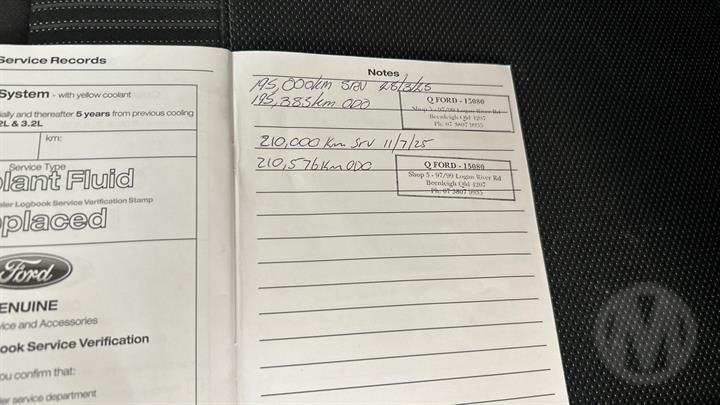 Service Records
System - with yellow coolant
ially and thereafter 5 years from previous cooling
2L & 3.2L
km:
Service Type
lant Fluid
aler Logbook Service Verification Stamp
placed
Ford
ENUINE
vice and Accessories
ook Service Verification
ou confirm that:
ler service department
Notes
195,000km SRV 28/3/25
195,383km ODO
Q FORD - 15080
Shop 5 - 97/99 Logan River Rd
Beenleigh Qld 4207
Ph: 07 3807 9955
210,000 Km Srv 11/7/25
210,576 Km ODO
Q FORD - 15080
Shop 5 - 97/99 Logan River Rd
Beenleigh Qld 4207
Ph: 07 3807 9955
M